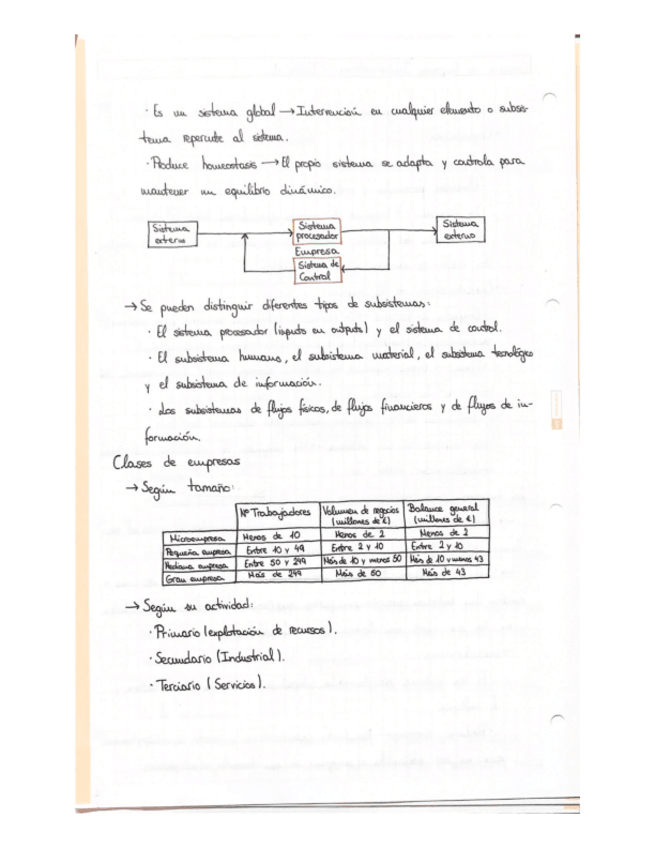 · Es un sistema global → Intervención en cualquier elemento o subsis-
tema repercute al sistema.
· Produce homeostasis → El propio sistema se adapta y controla para
mantener un equilibrio dinámico.
Sistema externo
Sistema procesador
Sistema externo
Empresa
Sistema de Control
→ Se pueden distinguir diferentes tipos de subsistemas:
· El sistema procesador (inputs en outputs) y el sistema de control.
· El subsistema humano, el subsistema material, el subsistema tecnológico
y el subsistema de información.
· Los subsistemas de flujos físicos, de flujos financieros y de flujos de in-
formación.
Clases de empresas
→ Según tamaño:
Nº Trabajadores Volumen de negocios (millones de €) Balance general (millones de €)
Microempresa Menos de 10 Menos de 2 Menos de 2
Pequeña empresa Entre 10 y 49 Entre 2 y 10 Entre 2 y 10
Mediana empresa Entre 50 y 249 Más de 10 y menos 50 Más de 10 y menos 43
Gran empresa Más de 249 Más de 50 Más de 43
→ Según su actividad:
· Primario (explotación de recursos).
· Secundario (Industrial).
· Terciario (Servicios).